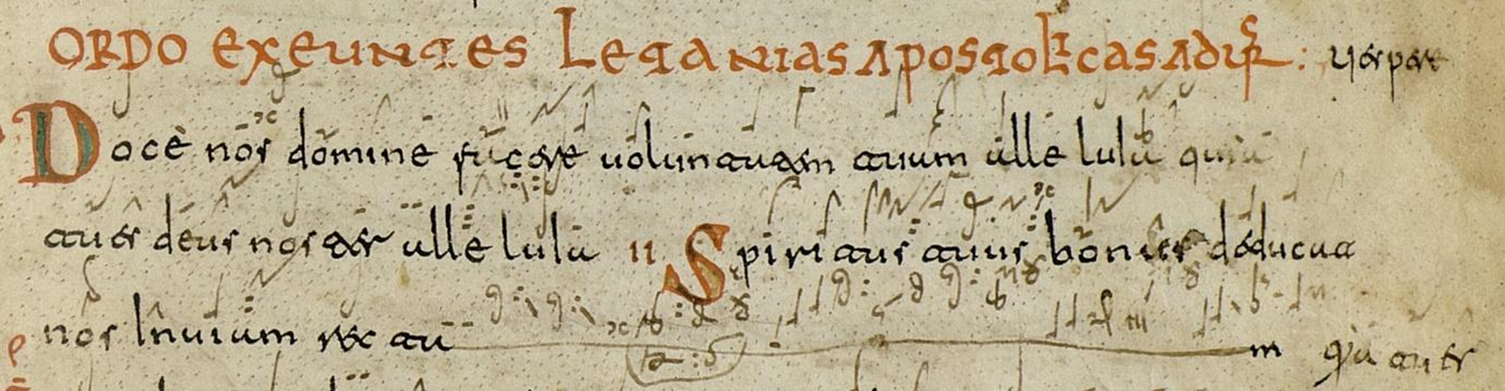 ORDO EXEUNTES LETANIAS APOSTOLICAS AD
Doce nos domine facere voluntatem tuam alleluia quia
tu es deus noster alleluia II Spiritus tuus bonus deducat
nos In viam rec ta m quia tu es